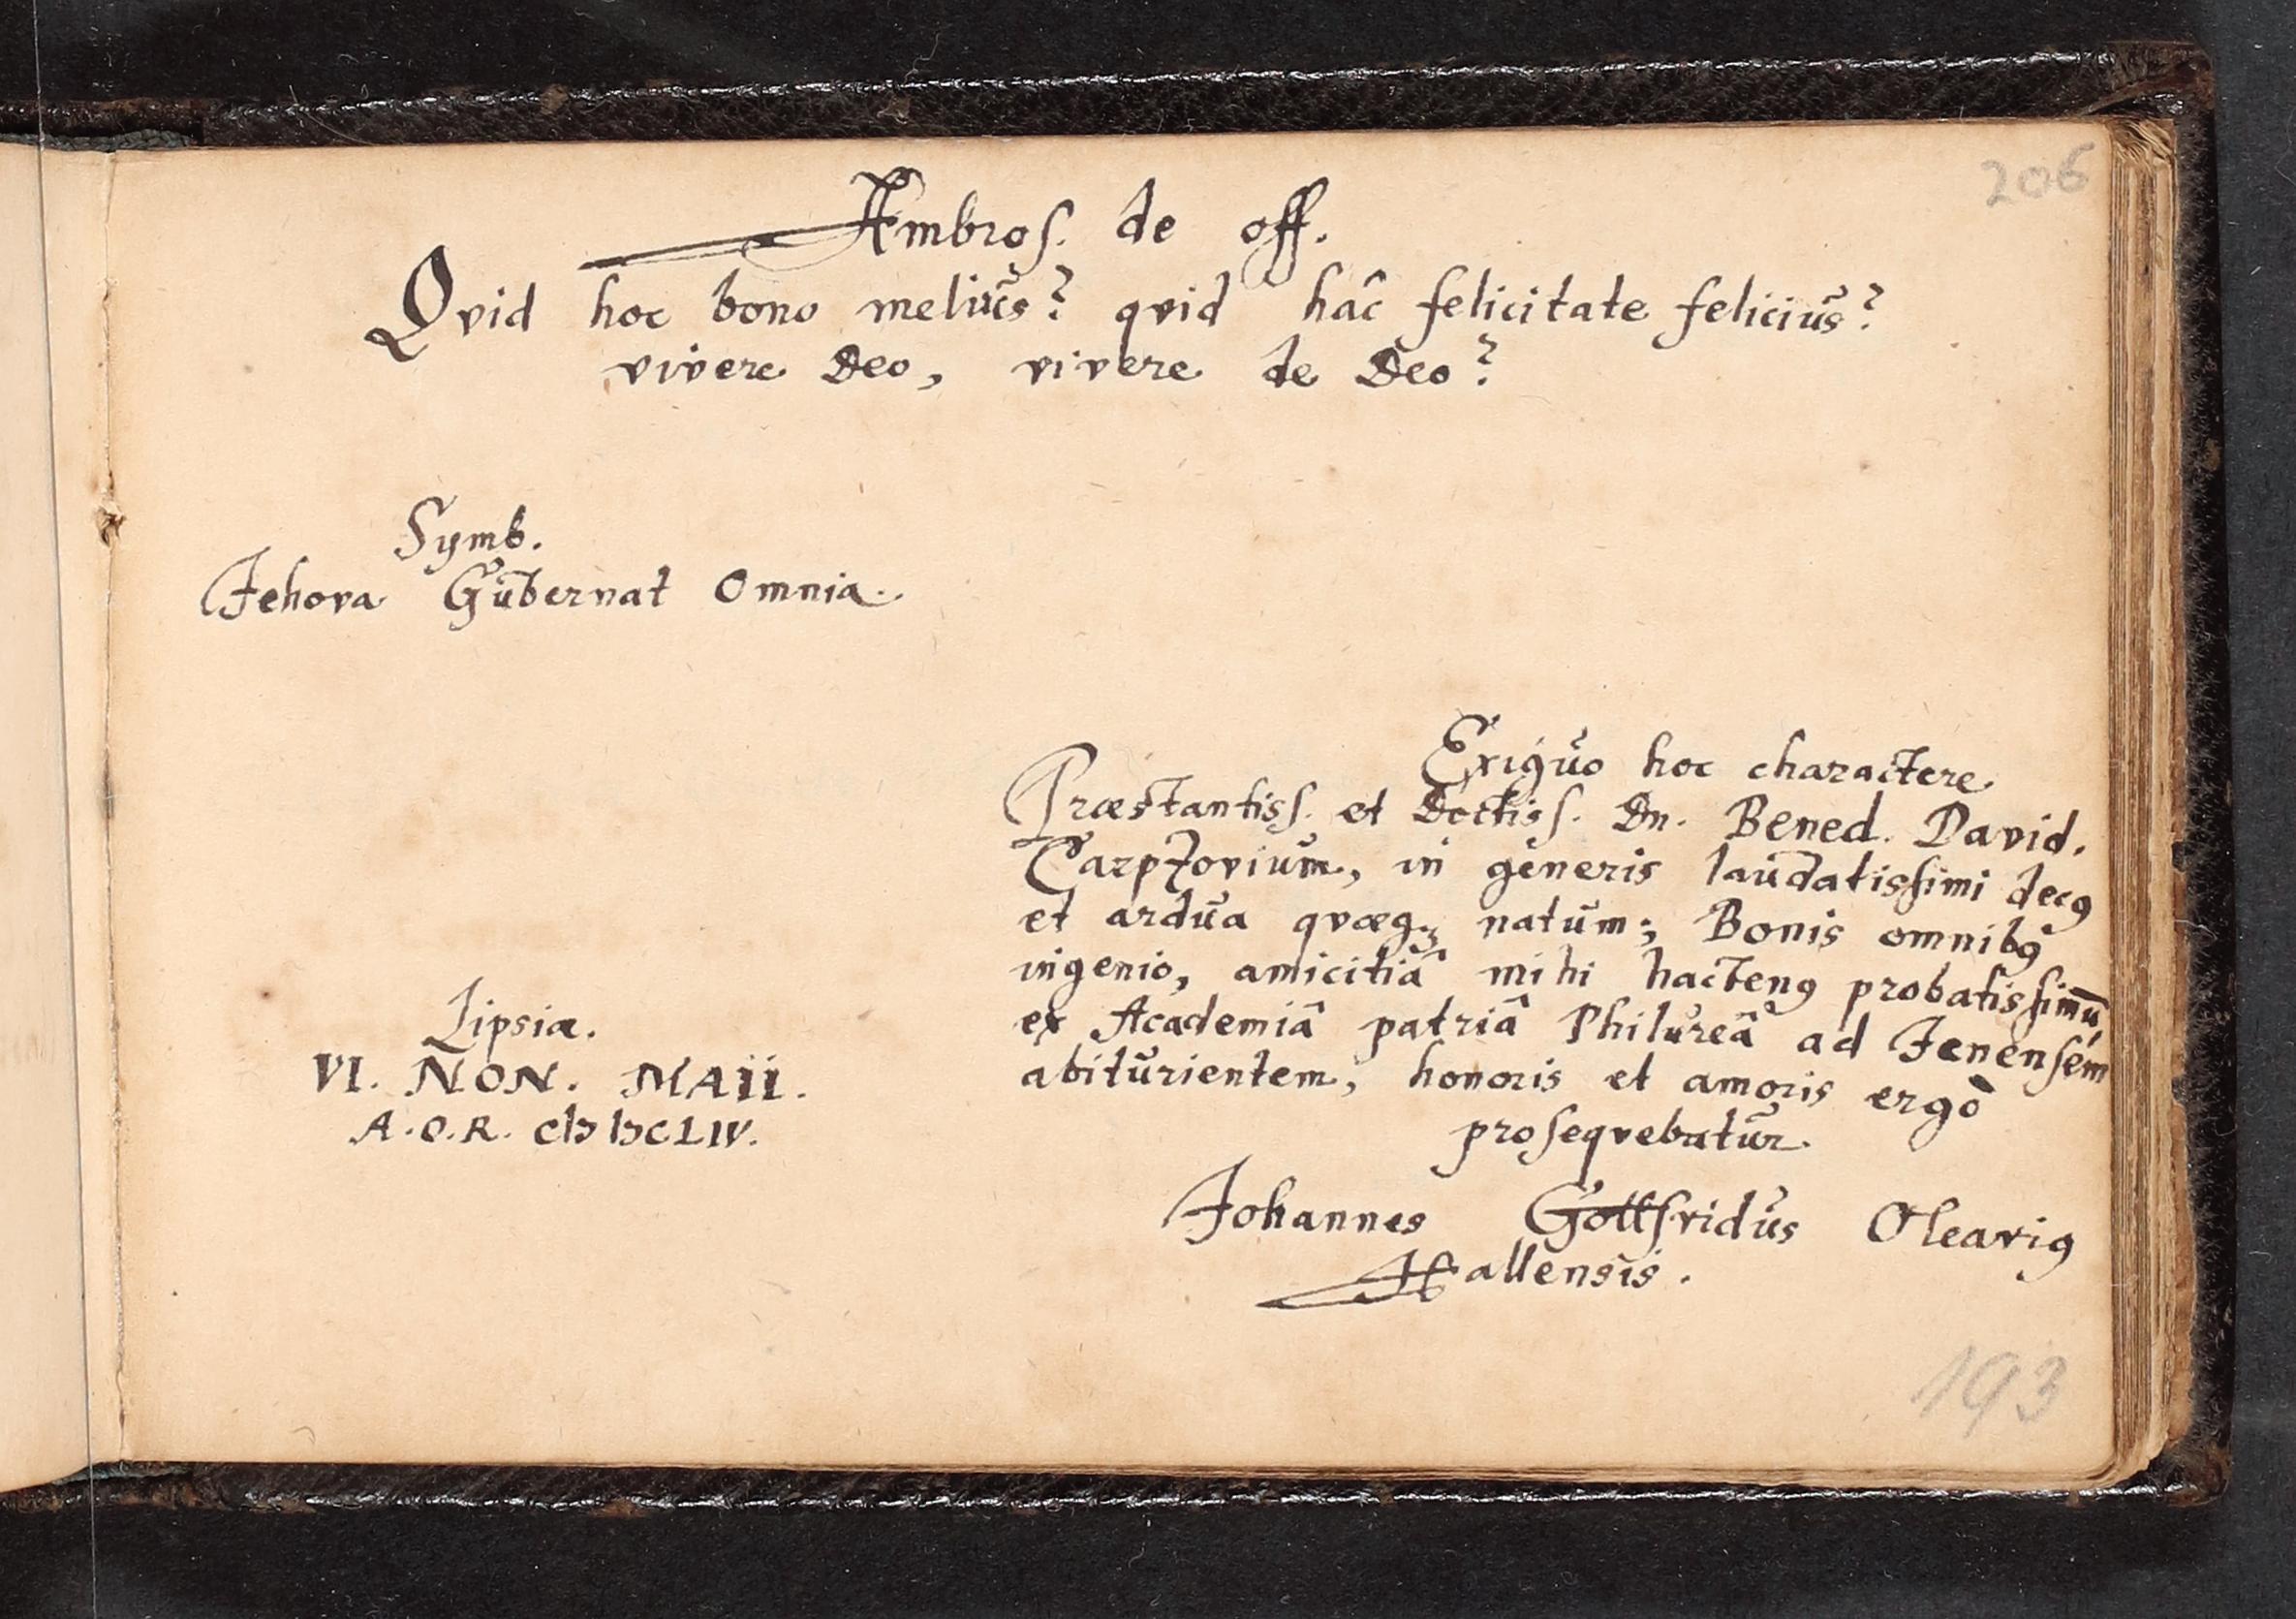 206
Ambros. de off.
Qvid hoc bono melius? qvid hâc felicitate felicius?
vivere Deo, vivere de Deo?
Symb.
Jehova Gubernat Omnia.
Exiguo hoc charactere
Præstantiss. et Doctiss. Dn. Bened. David.
Carpzovium, in generis laudatissimi decꝰ
et ardua qvæqꝫ natum; Bonis omnibꝰ
ingenio, amicitiâ mihi hactenꝰ probatissimū,
ex Academiâ patriâ Philureâ ad Jenensem
abiturientem, honoris et amoris ergò
proseqvebatur
Johannes Gottfridus Oleariꝰ
Hallensis.
Lipsiæ.
VI. NON. MAII.
A.O.R. CIↃ IↃCLIV.
193